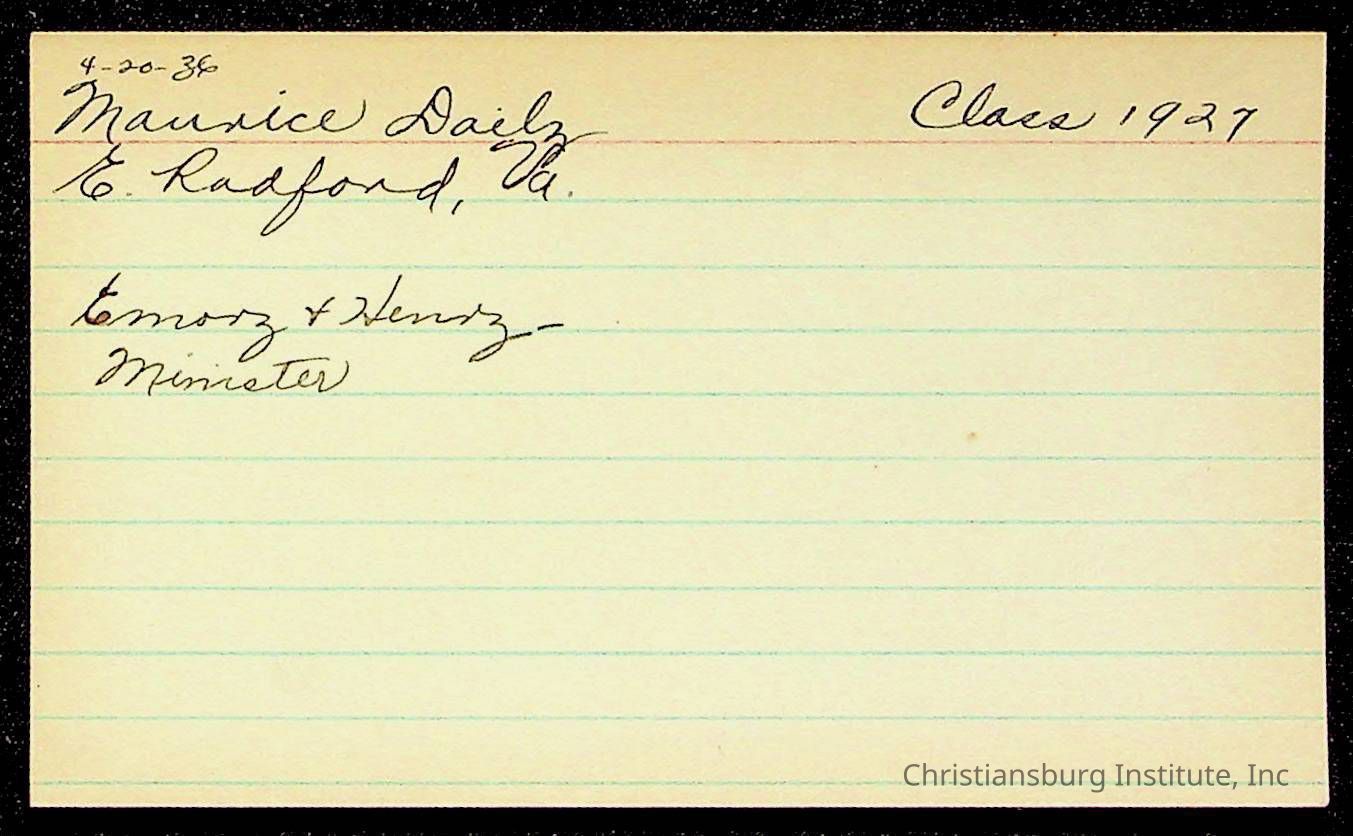 4-20-36
Maurice Daily Class 1927
E. Radford, Va.
Emory & Henry -
Minister
Christiansburg Institute, Inc